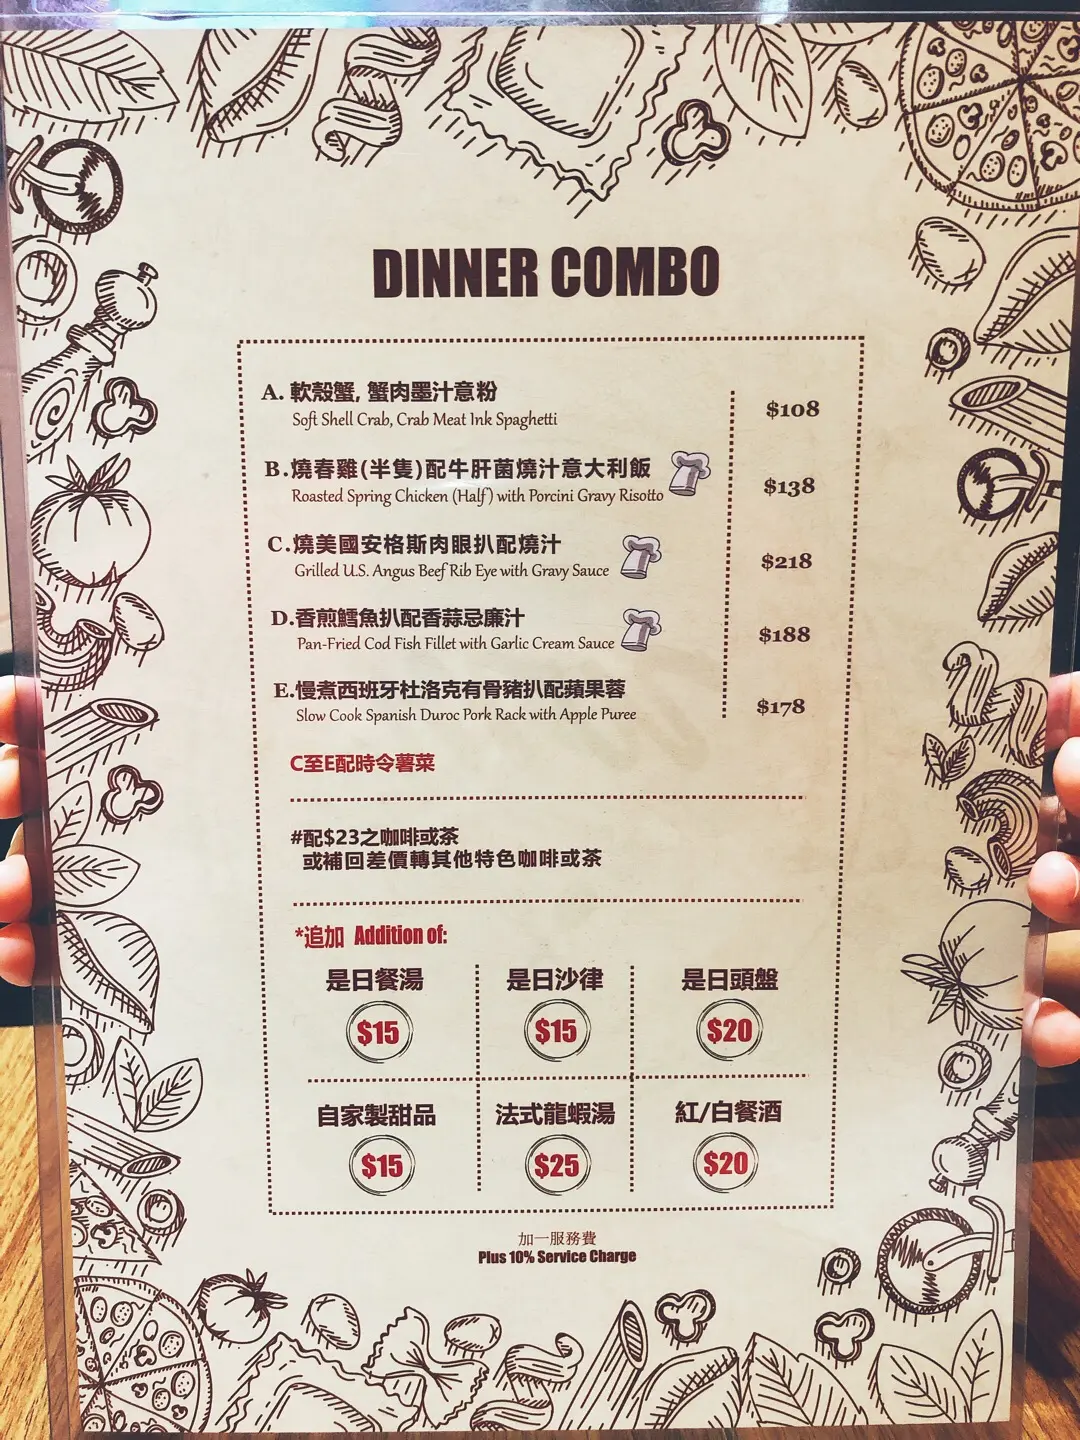 DINNER COMBO
A. 軟殼蟹, 蟹肉墨汁意粉
Soft Shell Crab, Crab Meat Ink Spaghetti
$108
B.燒春雞(半隻)配牛肝菌燒汁意大利飯
Roasted Spring Chicken (Half) with Porcini Gravy Risotto
$138
C.燒美國安格斯肉眼扒配燒汁
Grilled U.S. Angus Beef Rib Eye with Gravy Sauce
$218
D.香煎鱈魚扒配香蒜忌廉汁
Pan-Fried Cod Fish Fillet with Garlic Cream Sauce
$188
E.慢煮西班牙杜洛克有骨豬扒配蘋果蓉
Slow Cook Spanish Duroc Pork Rack with Apple Puree
$178
C至E配時令薯菜
#配$23之咖啡或茶
或補回差價轉其他特色咖啡或茶
*追加 Addition of:
是日餐湯 是日沙律 是日頭盤
$15 $15 $20
自家製甜品 法式龍蝦湯 紅/白餐酒
$15 $25 $20
加一服務費
Plus 10% Service Charge